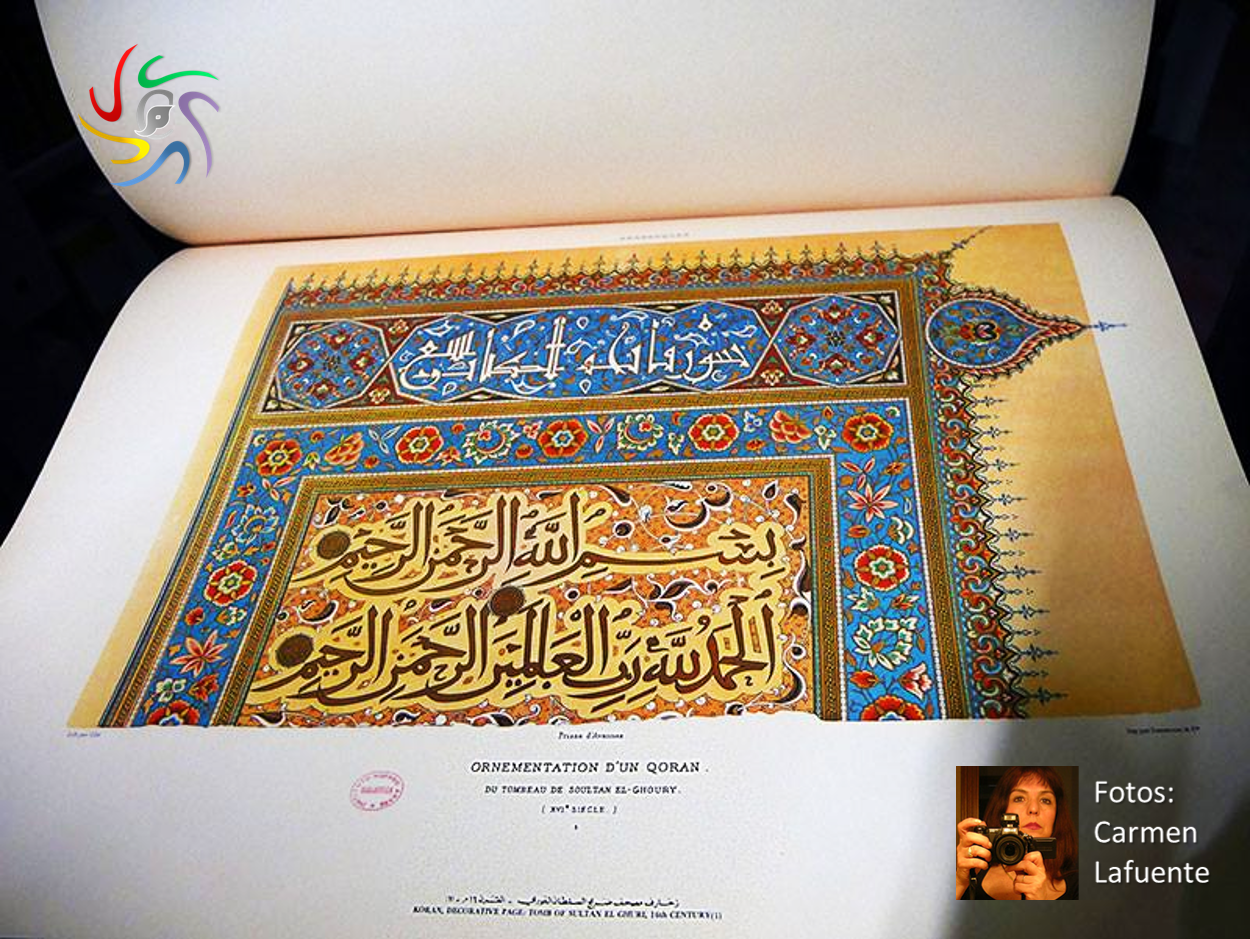 سورة فاتحة الكتاب
بِسْمِ اللَّهِ الرَّحْمَنِ الرَّحِيمِ
الْحَمْدُ لِلَّهِ رَبِّ الْعَالَمِينَ الرَّحْمَنِ الرَّحِيمِ
Prisse d'Avennes
ORNEMENTATION D'UN QORAN.
DU TOMBEAU DE SOULTAN EL-GHOURY.
(XVIᵉ SIÈCLE.)
زخارف مصحف ضريح السلطان الغوري - القرن ١٦ م
KORAN, DECORATIVE PAGE: TOMB OF SULTAN EL GHURI, 16th CENTURY (1)
Fotos:
Carmen
Lafuente